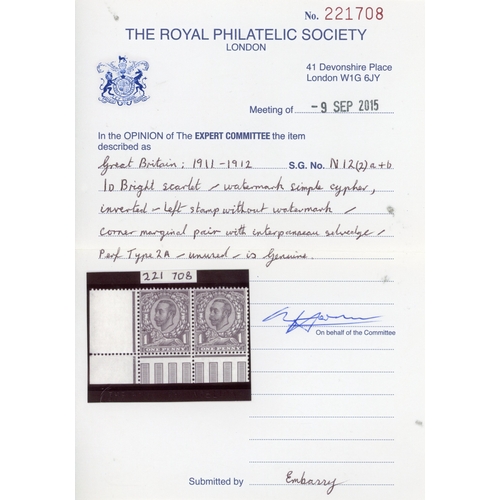 No. 221708
THE ROYAL PHILATELIC SOCIETY
LONDON
41 Devonshire Place
London W1G 6JY
Meeting of - 9 SEP 2015
In the OPINION of The EXPERT COMMITTEE the item
described as
Great Britain; 1911-1912 S.G. No. N12(2)a+b
1D Bright scarlet - watermark simple cypher,
inverted - left stamp without watermark -
corner marginal pair with interpanneau selvedge -
Perf Type 2A - unused - is Genuine.
221 708
1 ONE PENNY 1 1 ONE PENNY 1
On behalf of the Committee
Submitted by Embassy